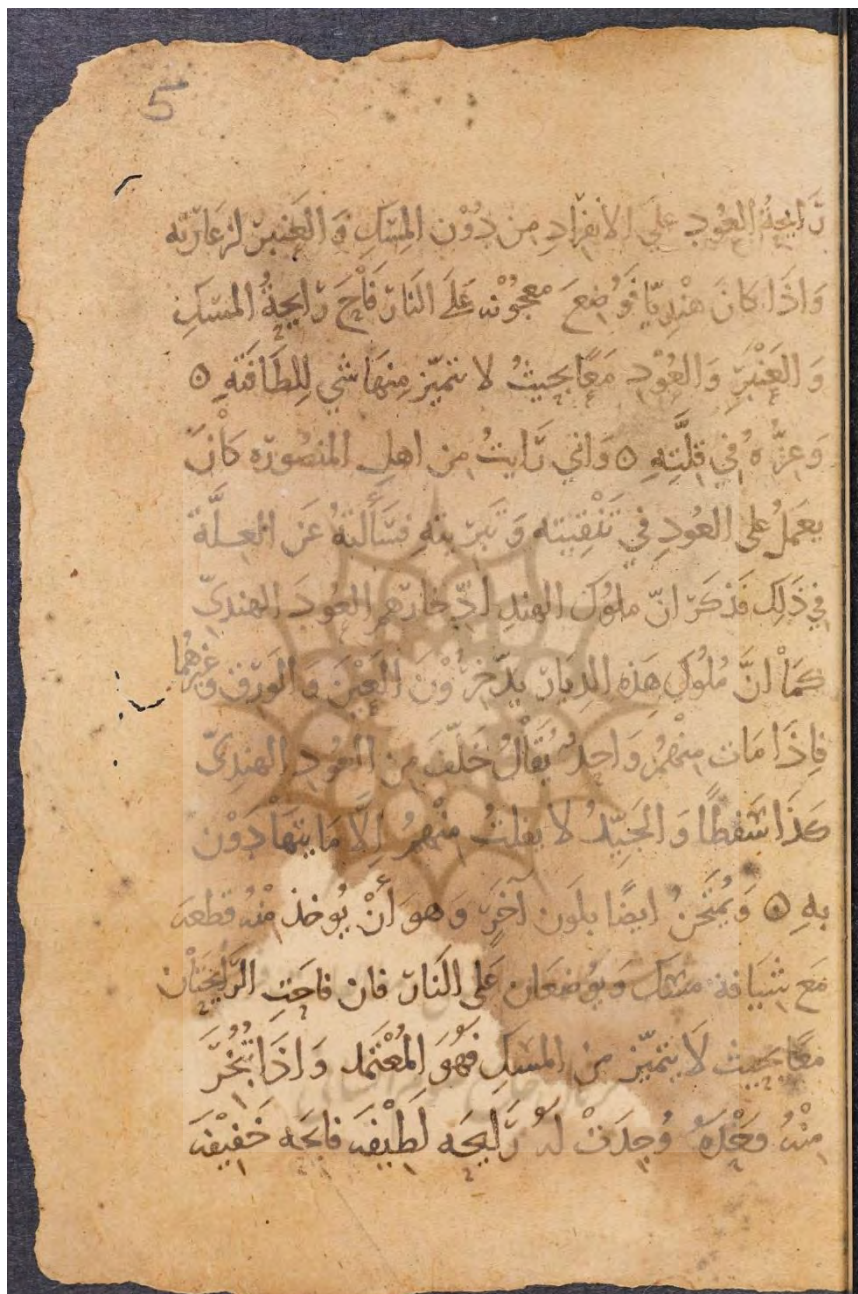 5
رَايحةُ العُودِ علَى الانفِرَادِ مِن دُوْن المِسْكِ وَ العَنبرِ لزعَارّته
وَاذَا كانَ هنْدِيّا فَوُضِعَ معجُوْنه عَلَى النارِ فَاْحَ رَايحةُ المسْكِ
وَ العَنْبَرِ وَالعُوْدِ مَعًا بحيثُ لا يتميّز مِنهَا شي لِلطَافَتَهِ ٥
وَعِزُّهُ في قِلَّتِهِ ٥ وَاني رَايتُ مِن اهل المنصُورَه كانَ
يعمَلُ علَى العُودِ في تَنْقِيَته وَ تَبرِيته فسَأَلتهُ عَن العِلَّة
فِي ذَلِكَ فَذكَرَ انّ ملوُكَ الهندِ ادّخارُهم العُودَ الهندِىّ
كمَاْ انَّ مُلُوك هَذه الدِيَارِ يدّخرُوْنَ العَيْنَ وَ الوَرق وغيرَهُما
فاِذَا مَات مِنْهُمْ وَاحِدٌ يُقَاْلُ خَلّفَ مِن العُودِ الهندِىّ
كذَا سَفطًا وَ الجَيّدُ لا يفلتُ مِنْهمُ اِلّا مَا يتهَاْدَوْن
بهِ ٥ وَيُمتَحنُ ايضًا بلَون آخرَ وَ هوَ أَنْ يُوخذ مِنْهُ قطعه
مَع شيَافة مسْك وَيوُضعَان علَى النَارِ فان فاحَتِ الرَّايحَتَاْن
معًا بحيث لَا يتميّز مِن المسكِ فَهُوَ المُعْتَمد وَ اذَا تُبُخّرَ
مِنْهُ وَحْدَهُ وُجِدَتْ لَهُ رَايحَه لَطِيْفَه فَايحَه خَفِيْفَه